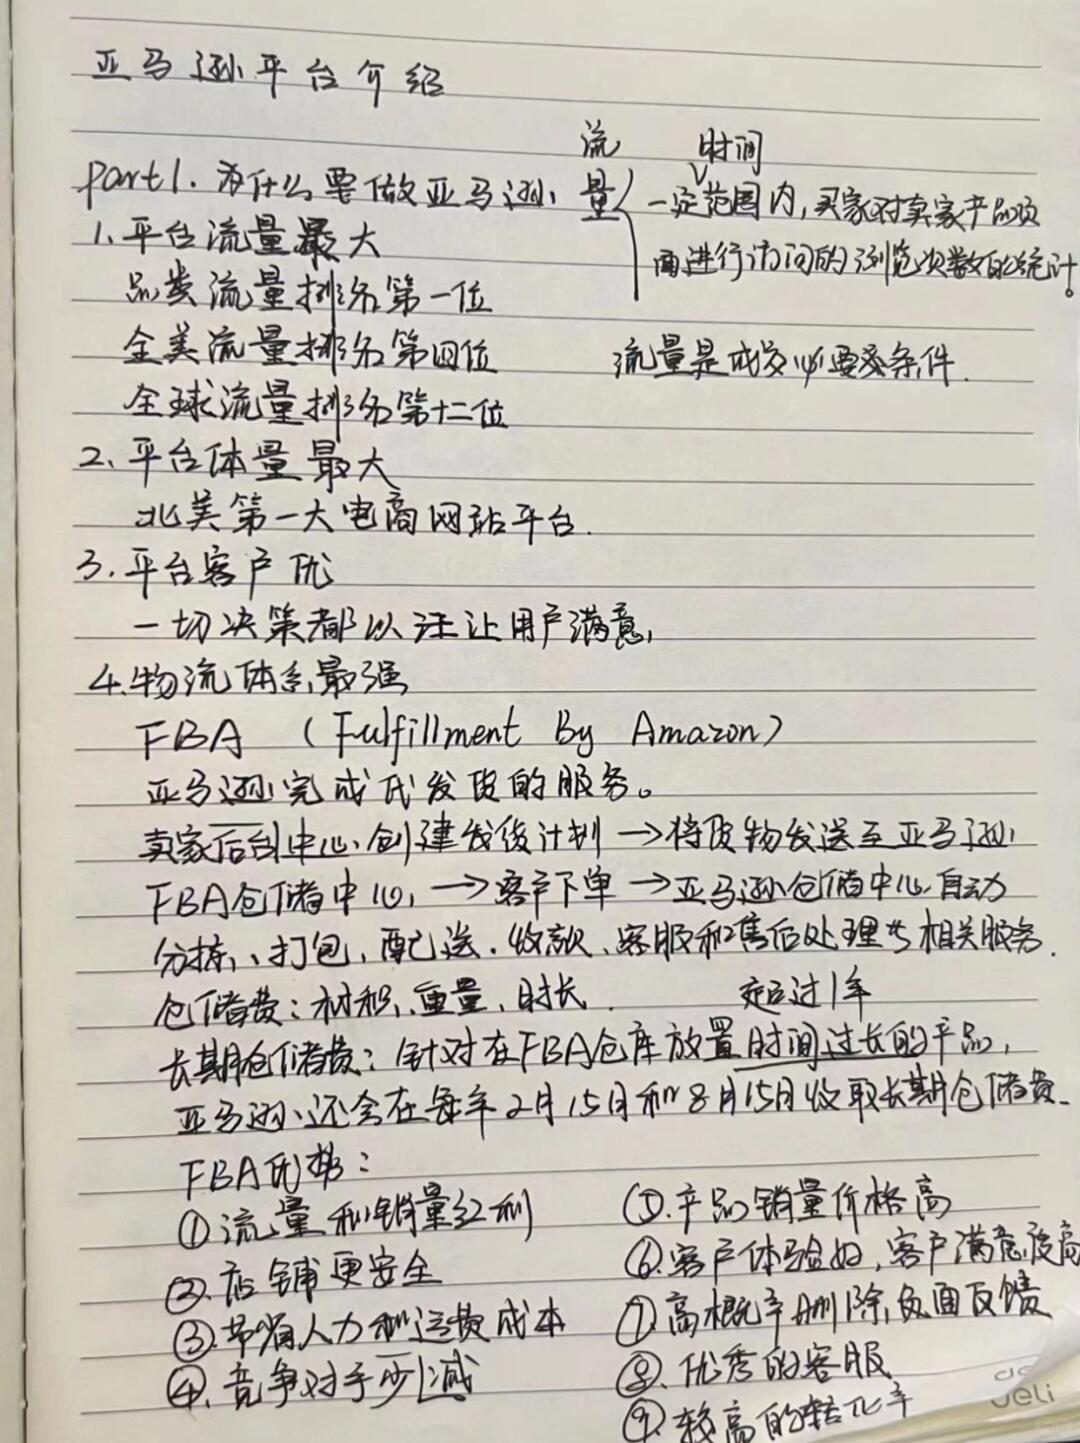 亚马逊平台介绍
part1. 为什么要做亚马逊
1、平台流量最大
品类流量排名第一位
全美流量排名第四位
全球流量排名第十二位
2、平台体量最大
北美第一大电商网站平台.
3.平台客户优
一切决策都以注让用户满意,
4.物流体系最强
FBA (Fulfillment By Amazon)
亚马逊完成代发货的服务。
卖家后台中心创建发货计划→将货物发送至亚马逊
FBA仓储中心→客户下单→亚马逊仓储中心自动
分拣、打包、配送.收款、客服和售后处理与相关服务.
仓储费:材积、重量、时长. 超过1年
长期仓储费:针对在FBA仓库放置时间过长的产品,
亚马逊还会在每年2月15日和8月15日收取长期仓储费.
FBA优势:
①流量和销量红利
②.店铺更安全
③.节省人力和运费成本
④.竞争对手少减
⑤.产品销量价格高
⑥.客户体验好,客户满意度高
⑦.高概率删除负面反馈
⑧.优秀的客服
⑨.较高的转化率
流量 时间
一定范围内,买家对卖家产品页
面进行访问的浏览次数的统计。
流量是成交必要条件.
deli